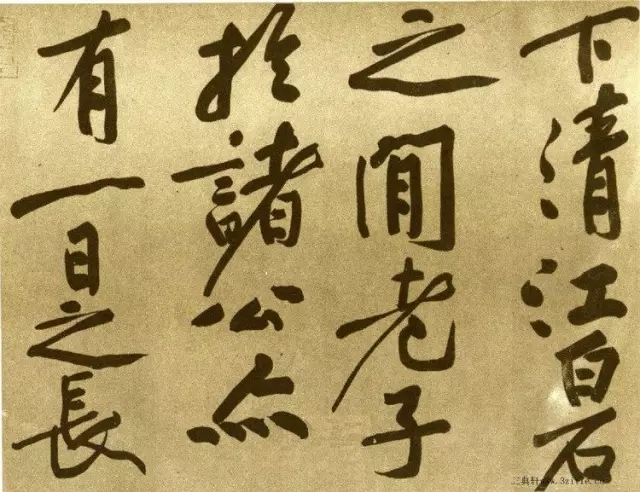 下清江白石
之間老子
於諸公亦
有一日之長
www.3zitie.cn